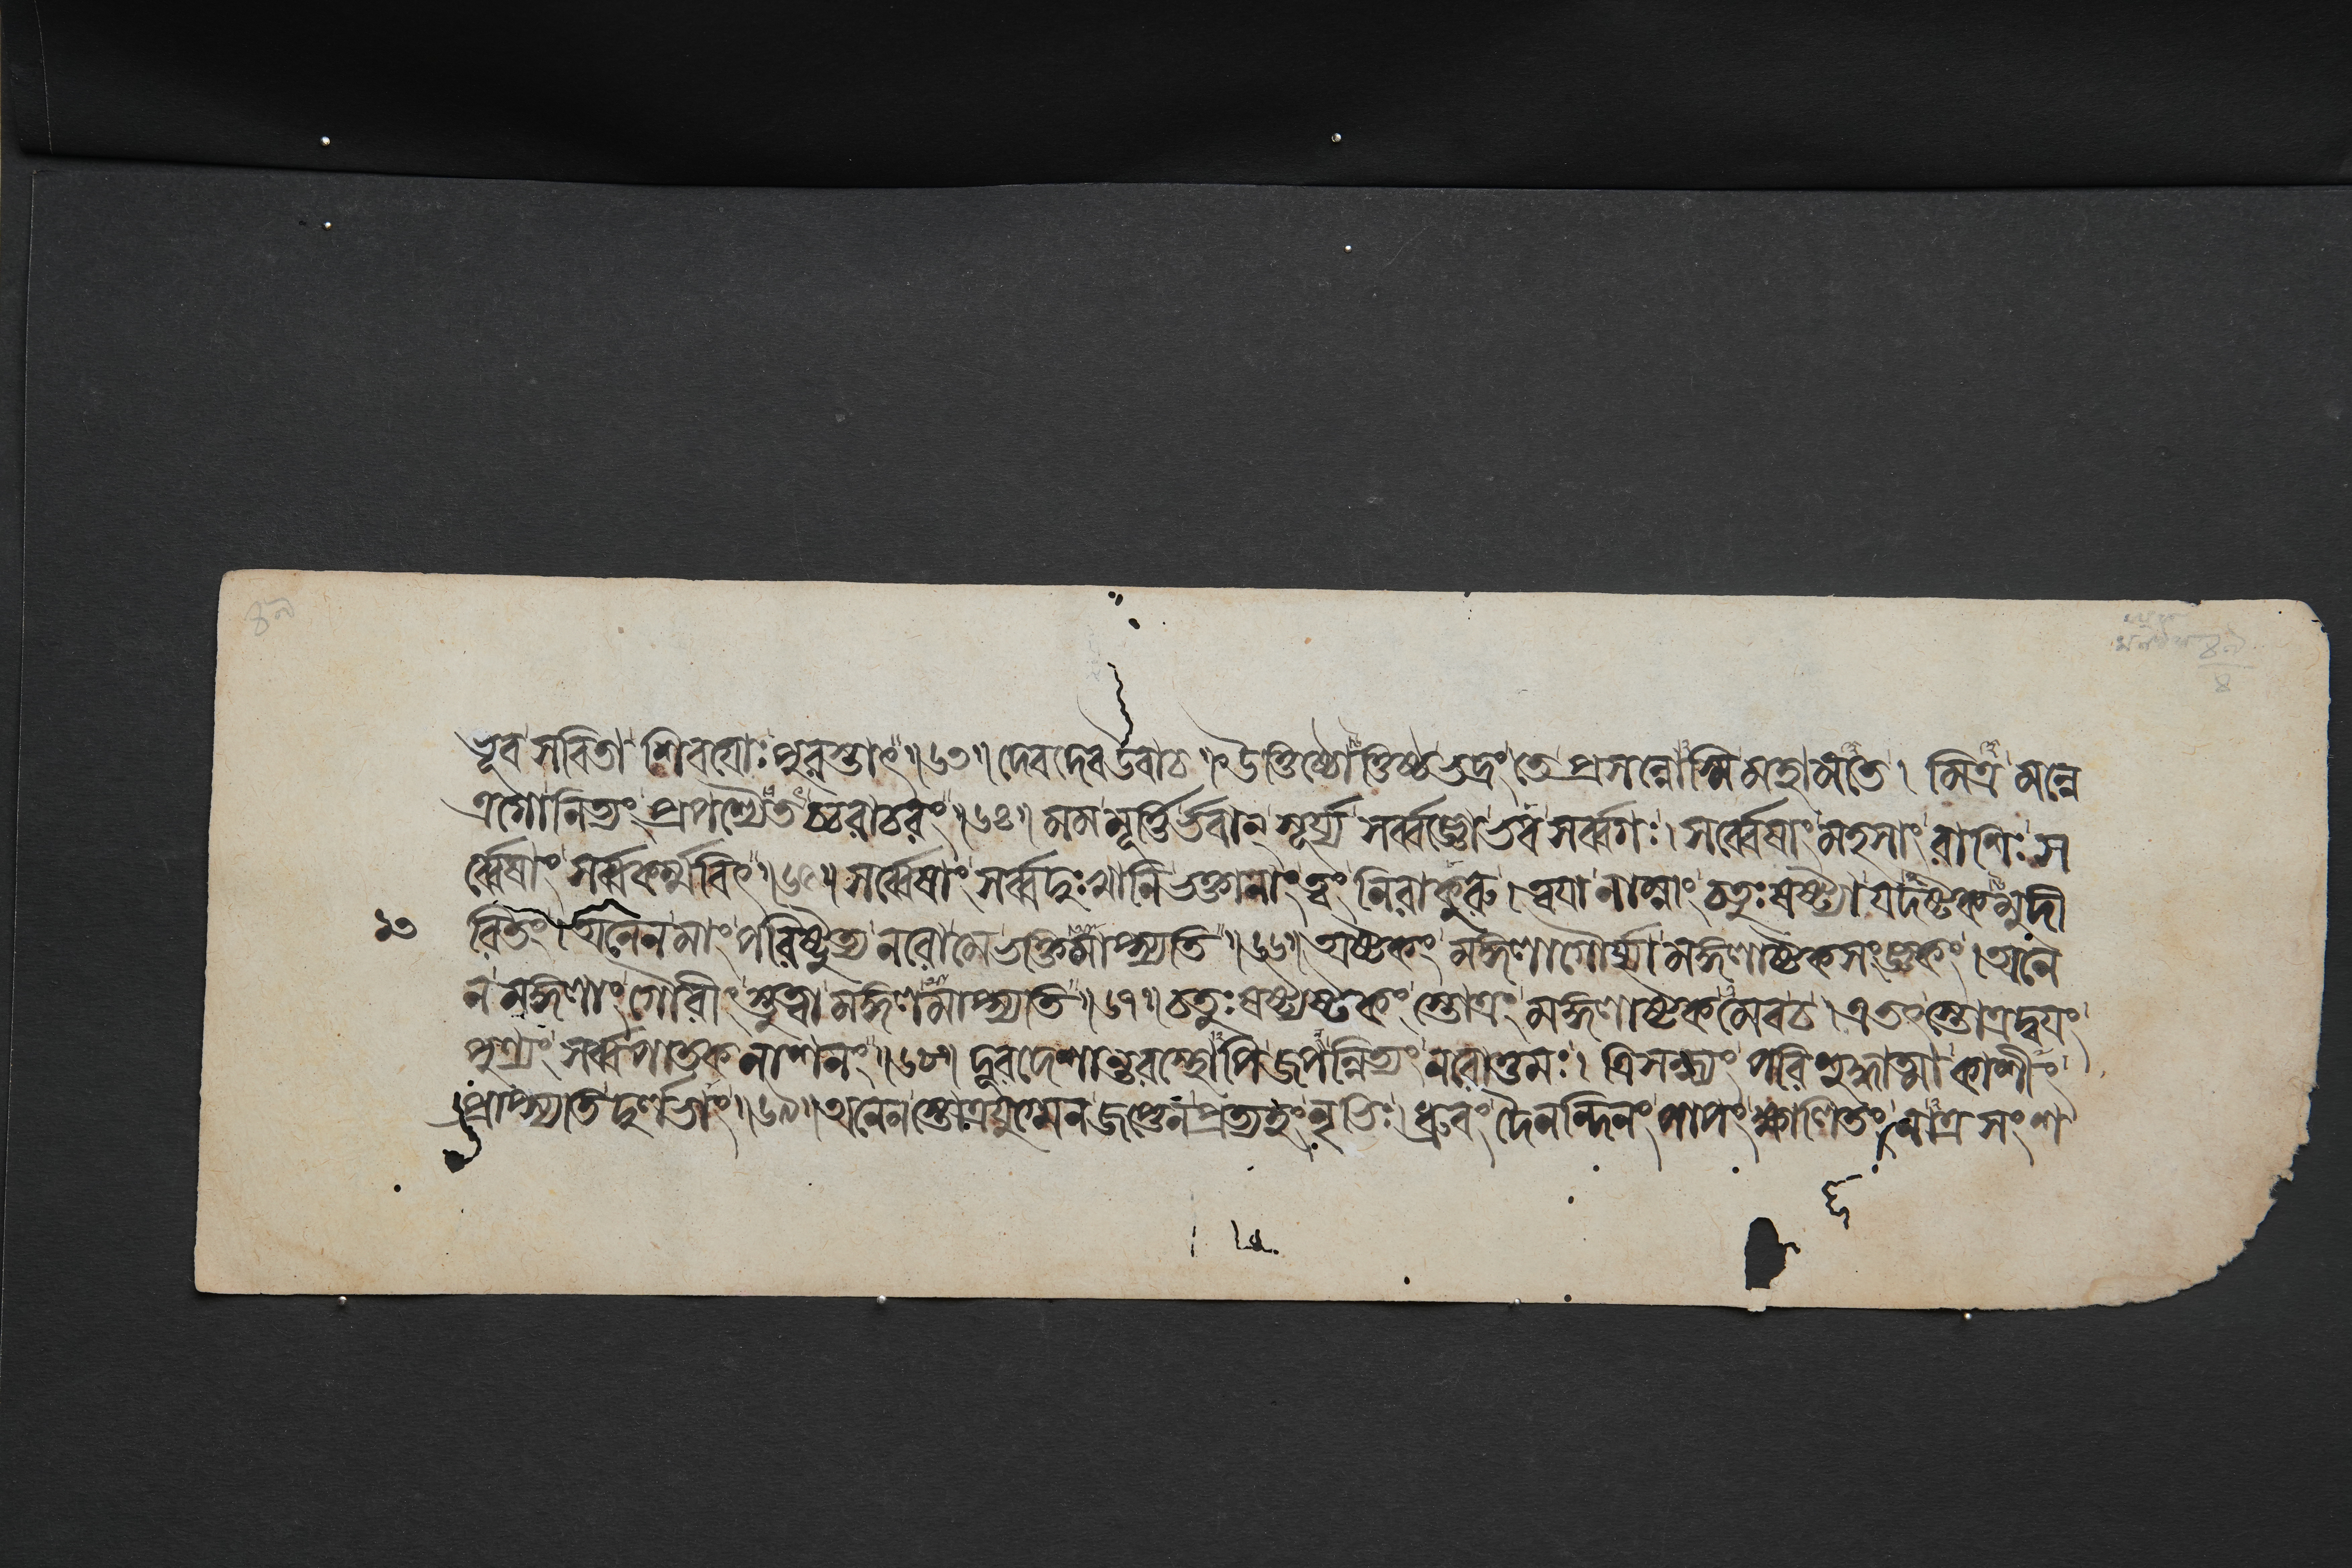 ৪৯
৪৯
৪
ভূব সবিতা শিবয়োঃ পুরস্তাৎ॥৬৩॥ দেবদেব উবাচ॥ উত্তিষ্ঠোত্তিষ্ঠ ভদ্রং তে প্রসন্নোস্মি মহামতে। মিত্র মন্নে
ত্রগো নিত্যং প্রপশ্যৈতচ্চরাচরং॥৬৪॥ মম মূর্ত্তির্ভবান্ সূর্য্য সর্ব্বজ্ঞো ভব সর্ব্বগঃ। সর্ব্বেষাং মহসাং রাশিঃ স
র্ব্বেষাং সর্ব্বকর্ম্মবিৎ॥৬৫॥ সর্ব্বেষাং সর্ব্বদুঃখানি ভক্তানাং ত্বং নিরাকুরু। ত্বয়া নাম্নাং চতুঃষষ্ট্যা যদষ্টকমুদী
১৩
রিতং। অনেন মাং পরিষ্টুত্য নরো মে ভক্তিমাপ্স্যতি॥৬৬॥ অষ্টকং মঙ্গলাগৌর্য্যা মঙ্গলাষ্টকসংজ্ঞকং। অনে
ন মঙ্গলাং গৌরীং স্তুত্বা মঙ্গলমাপ্স্যতি॥৬৭॥ চতুঃষষ্ট্যষ্টকং স্তোত্রং মঙ্গলাষ্টকমেবচ। এতৎ স্তোত্রদ্বয়ং
পুণ্যং সর্ব্বপাতকনাশনং॥৬৮॥ দূরদেশান্তরস্থোপি জপন্নিত্যং নরোত্তমঃ। ত্রিসন্ধ্যং পরিশুদ্ধাত্মা কাশীং
প্রাপ্স্যতি দুর্লভাং॥৬৯॥ অনেন স্তোত্রযুগ্মেন জপ্তেন প্রত্যহং নৃভিঃ। ধ্রুবং দৈনন্দিনং পাপং ক্ষালিতং নাত্র সংশ